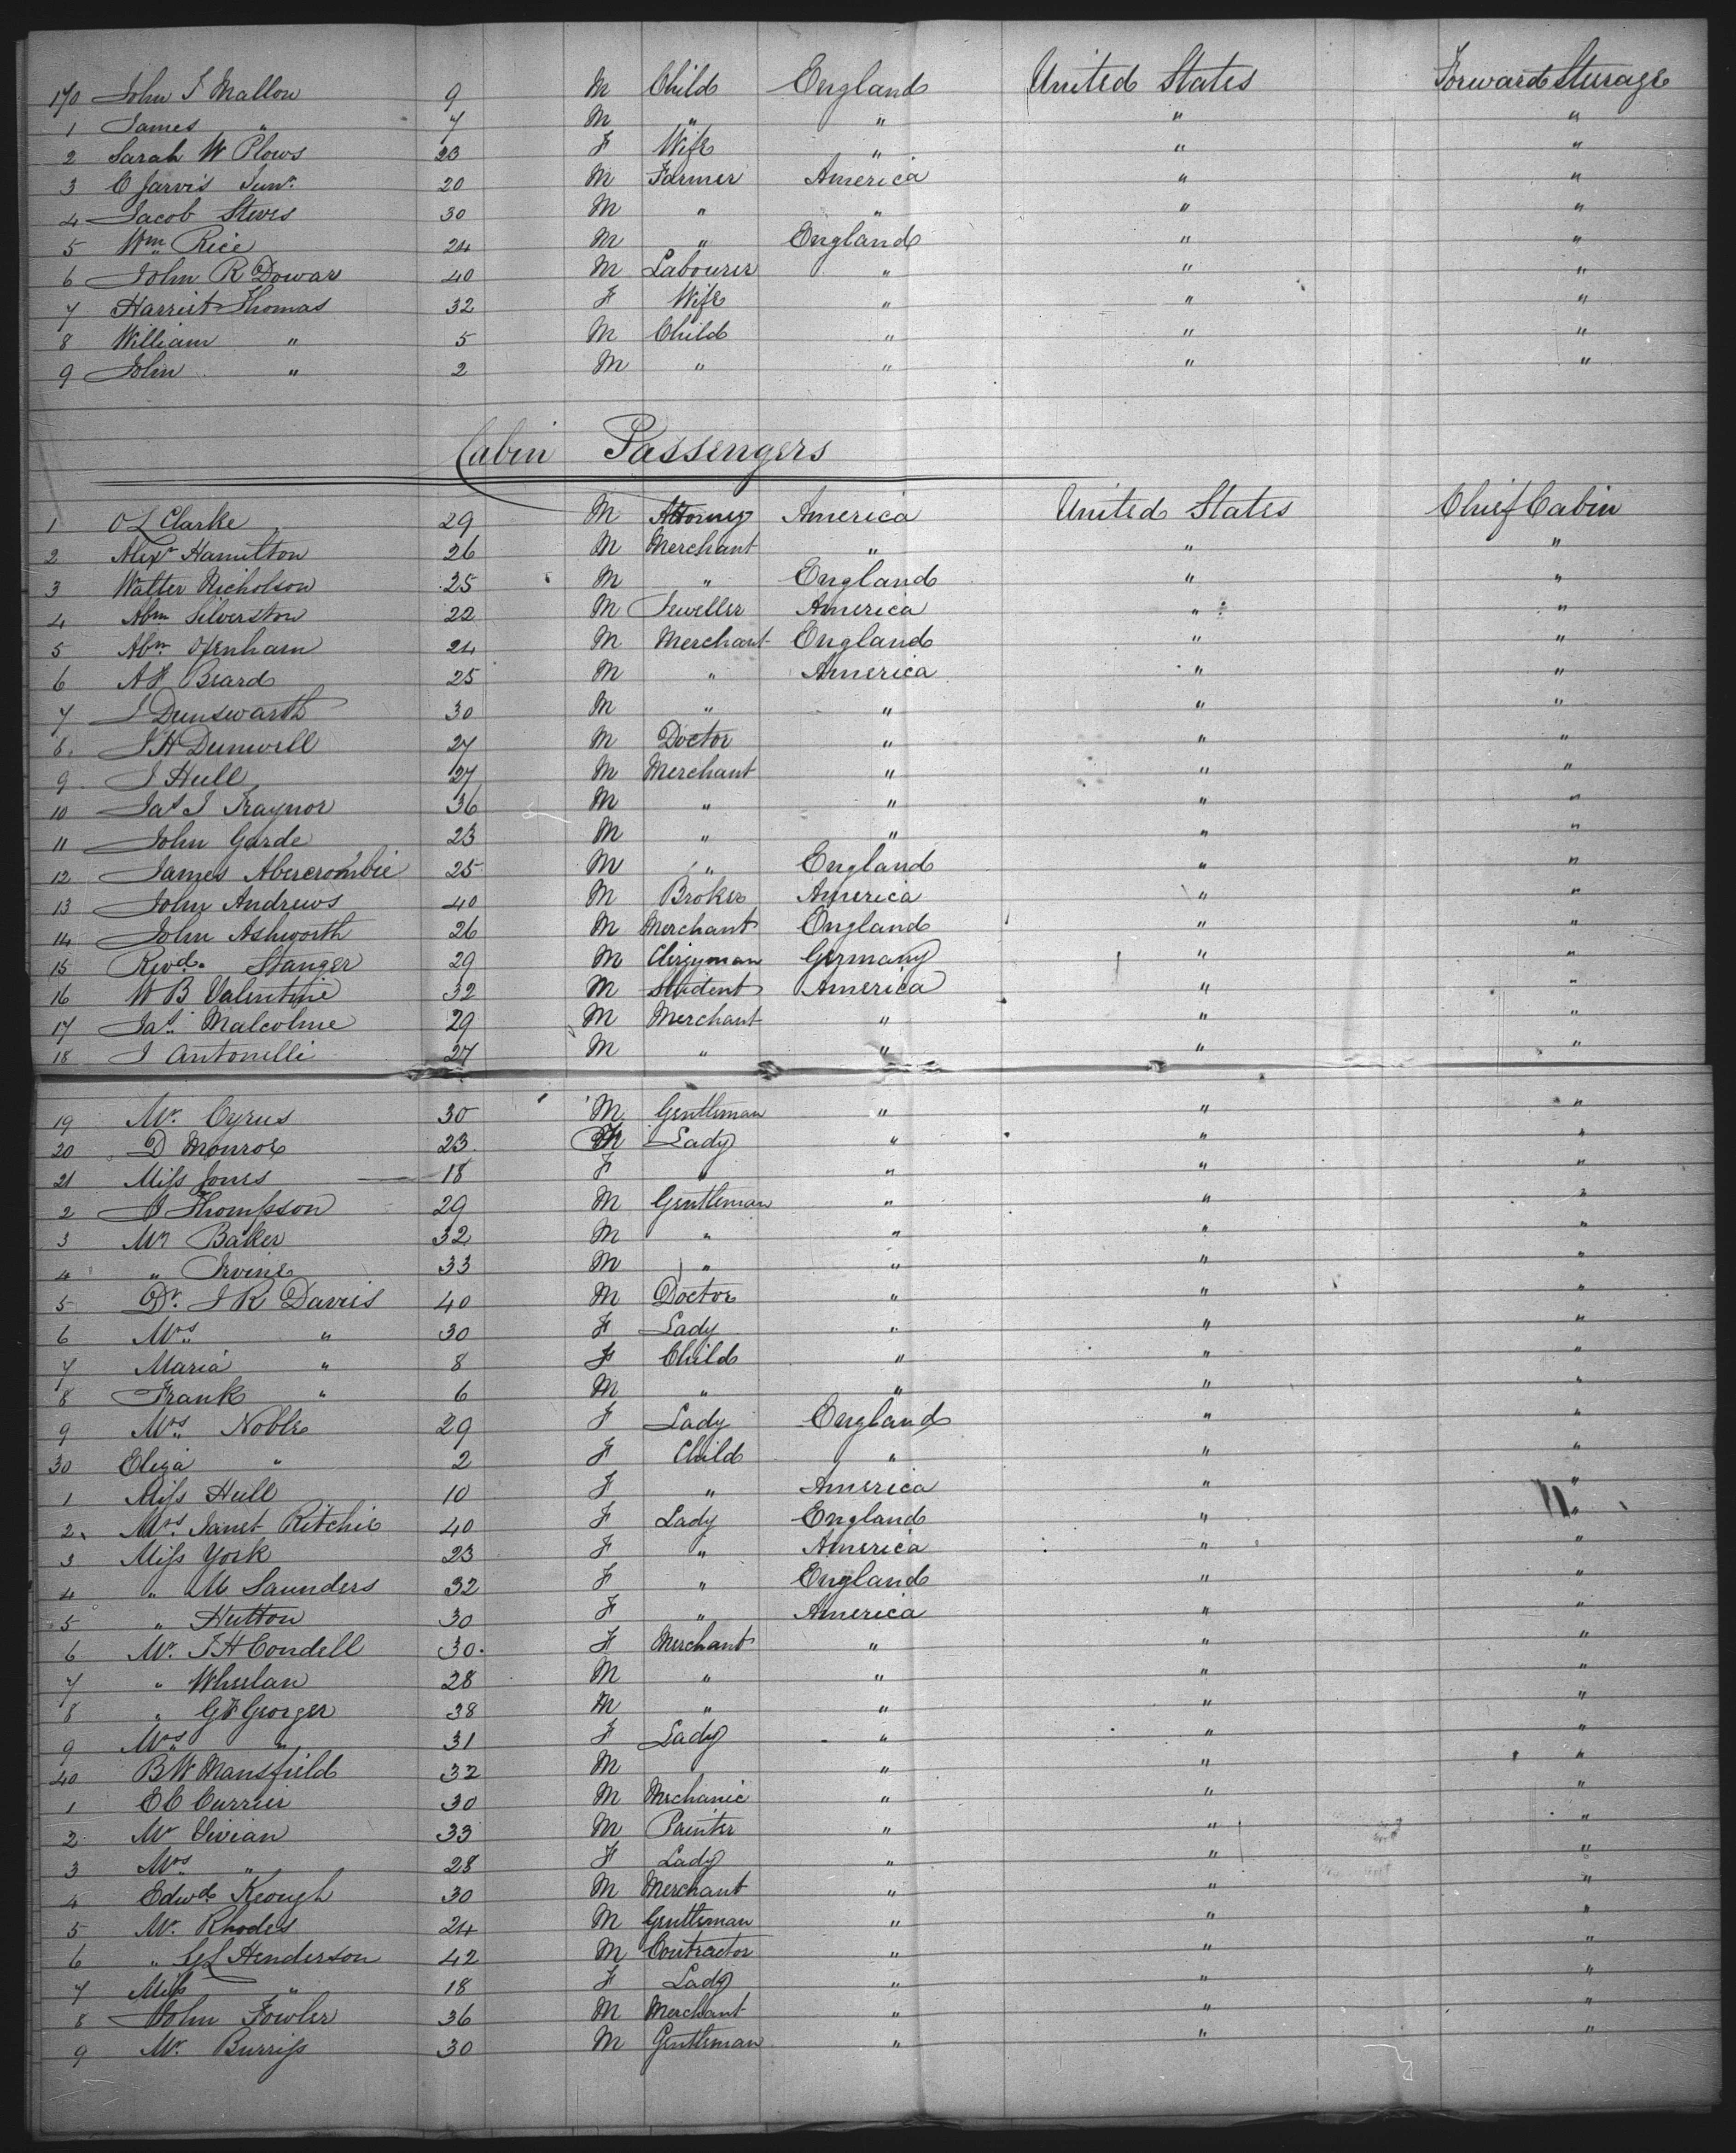 170 John T Mallow 9 M Child England United States Forward Sturage
1 James " 7 M " " " "
2 Sarah W Plows 23 F Wife " " "
3 C Jarvis Junr. 20 M Farmer America " "
4 Jacob Steves 30 M " " " "
5 Wm Rice 24 M " England " "
6 John R Dowar 40 M Labourer " " "
7 Harriet Thomas 32 F Wife " " "
8 William " 5 M Child " " "
9 John " 2 M " " " "
Cabin Passengers
1 O L Clarke 29 M Attorney America United States Chief Cabin
2 Alexr Hamilton 26 M Merchant " " "
3 Walter Nicholson 35 M " England " "
4 Abm Silverston 22 M Jeweller America " "
5 Abm Oxenham 24 M Merchant England " "
6 A F Beard 25 M " America " "
7 J Dunswarth 30 M " " " "
8 J H Dunwell 27 M Doctor " " "
9 J Hull 27 M Merchant " " "
10 Jas J Traynor 36 M " " " "
11 John Garde 23 M " " " "
12 James Abercrombie 25 M " England " "
13 John Andrews 40 M Broker America " "
14 John Ashworth 26 M Merchant England " "
15 Revd. Stanger 29 M Clergyman Germany " "
16 W B Valentine 32 M Student America " "
17 Jas. Malcolme 29 M Merchant " " "
18 J Antonelli 27 M " " " "
19 Mr. Cyrus 30 M Gentleman " " "
20 D Monroe 23 Lady " " "
21 Miss Jones 18 F " " " "
2 J Thompson 29 M Gentleman " " "
3 Mr Baker 32 M " " " "
4 " Irvine 33 M " " " "
5 Dr. J R Davies 40 M Doctor " " "
6 Mrs " 30 F Lady " " "
7 Maria " 8 F Child " " "
8 Frank " 6 M " " " "
9 Mrs Noble 29 F Lady England " "
30 Eliza " 2 F Child " " "
1 Miss Hull 10 F " America " "
2 Mrs. Janet Ritchie 40 F Lady England " "
3 Miss York 23 F " America " "
4 " M Saunders 32 F " England " "
5 " Hutton 30 F " America " "
6 Mr. J H Condell 30 F Merchant " " "
7 " Whelan 28 M " " " "
8 " G F Georger 38 M " " " "
9 Mrs " 31 F Lady " " "
40 B W Mansfield 32 M " " "
1 E C Currier 30 M Mechanic " " "
2 Mr Vivian 33 M Painter " " "
3 Mrs " 28 F Lady " " "
4 Edwd Keough 30 M Merchant " " "
5 Mr. Rhodes 24 M Gentleman " " "
6 " G L Henderson 42 M Contractor " " "
7 Miss " 18 F Lady " " "
8 John Fowler 36 M Merchant " " "
9 Mr. Burriss 30 M Gentleman " " "